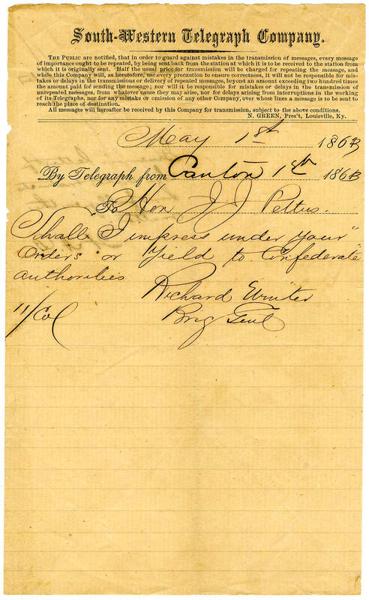 South-Western Telegraph Company.
THE PUBLIC are notified, that in order to guard against mistakes in the transmission of messages, every message
of importance ought to be repeated, by being sent back from the station at which it is to be received to the station from
which it is originally sent. Half the usual price for transmission will be charged for repeating the message, and
while this Company will, as heretofore, use every precaution to ensure correctness, it will not be responsible for mis-
takes or delays in the transmissions or delivery of repeated messages, beyond an amount exceeding two hundred times
the amount paid for sending the message; nor will it be responsible for mistakes or delays in the transmission of
unrepeated messages, from whatever cause they may arise, nor for delays arising from interruptions in the working
of its Telegraphs, nor for any mistake or omission of any other Company, over whose lines a message is to be sent to
reach the place of destination.
All messages will hereafter be received by this Company for transmission, subject to the above conditions.
N. GREEN, Pres't, Louisville, Ky.
May 1st 1863
By Telegraph from Canton 1st 1863
To Hon J J Pettus.
Shall I impress under your
orders or yield to Confederate
authorities
Richard Winter
Brig Genl
11/Col